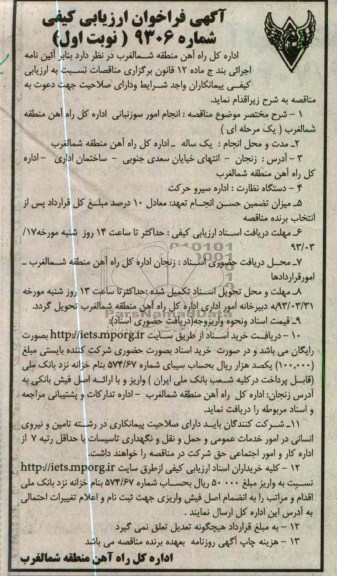 آگهی فراخوان ارزیابی کیفی
شماره ۹۳۰۶ ( نوبت اول)
اداره کل راه آهن منطقه شـمالغرب در نظر دارد بنابر آئین نامه
اجرائی بند ج ماده ۱۲ قانون برگزاری مناقصات نسـبت به ارزیابی
کیفـی پیمانکاران واجد شـرایط ودارای صلاحیت جهت دعوت به
مناقصه به شرح زیراقدام نماید.
۱ – شرح مختصر موضوع مناقصه : انجام امور سوزنبانی اداره کل راه آهن منطقه
شمالغرب ( یک مرحله ای )
۲ـ مدت و محل انجام : یک ساله ــ اداره کل راه آهن منطقه شمالغرب
۳ – آدرس : زنجان – انتهای خیابان سعدی جنوبی – ساختمان اداری – اداره
کل راه آهن منطقه شمالغرب
۴ – دستگاه نظارت : اداره سیرو حرکت
۵ـ میزان تضمین حسـن انجـام تعهد: معادل ۱۰ درصد مبلـغ کل قرارداد پس از
انتخاب برنده مناقصه
۶ـ مهلت دریافت اسـناد ارزیابی کیفی : حداکثر تا ساعت ۱۴ روز شنبه مورخه۱۷/
۹۳/۰۳
۷ـ محـل دریافت حضوری اسـناد : زنجان اداره کل راه آهن منطقه شمالغرب ـ
امورقراردادها
۸ـ مهلت و محل تحویل اسـناد تکمیل شده :حداکثرتا ساعت ۱۳ روز شنبه مورخه
۹۳/۰۳/۳۱به دبیرخانه امور اداری اداره کل راه آهن منطقه شمالغرب تحویل گردد.
۹ـ قیمت اسناد ونحوه واریزوجه(دریافت حضوری اسناد):
۱۰ – دریافـت خرید اسـناد از طریق سـایت http://iets.mporg.ir بصورت
رایگان می باشد و در صورت خرید اسناد بصورت حضوری شرکت کننده بایستی مبلغ
(۱۰۰,۰۰۰) یکصد هزار ریال بحساب سیبای شماره ۵۷۴/۶۷ بنام خزانه نزد بانک ملی
(قابـل پرداخت درکلیه شـعب بانک ملی ایران ) واریز و با ارائـه اصل فیش بانکی به
آدرس زنجان: اداره کل راه آهن منطقه شمالغرب – اداره تدارکات و پشتیبانی مراجعه
و اسناد مربوطه را دریافت نماید.
۱۱ـ شـرکت کنندگان بایـد دارای صلاحیت پیمانکاری در رشـته تامین و نیروی
انسانی در امور خدمات عمومی و حمل و نقل و نگهداری تاسیسات با حداقل رتبه ۷ از
اداره کار و امور اجتماعی حق شرکت در مناقصه را خواهند داشت.
۱۲ – کلیه خریداران اسناد ارزیابی کیفی ازطرق سایت http://iets.mporg.ir
نسـبت به واریز مبلغ ۵۰۰۰۰ ریال بحسـاب شـماره ۵۷۴/۶۷ بنام خزانه نزد بانک ملی
اقدام و مراتب را به انضمام اصل فیش واریزی جهت ثبت نام و اعلام تغییرات احتمالی
به آدرس این اداره کل ارسال نمایند .
۱۲ – به مبلغ قرارداد هیچگونه تعدیل تعلق نمی گیرد
۱۳ – هزینه چاپ آگهی روزنامه بعهده برنده مناقصه می باشد
اداره کل راه آهن منطقه شمالغرب